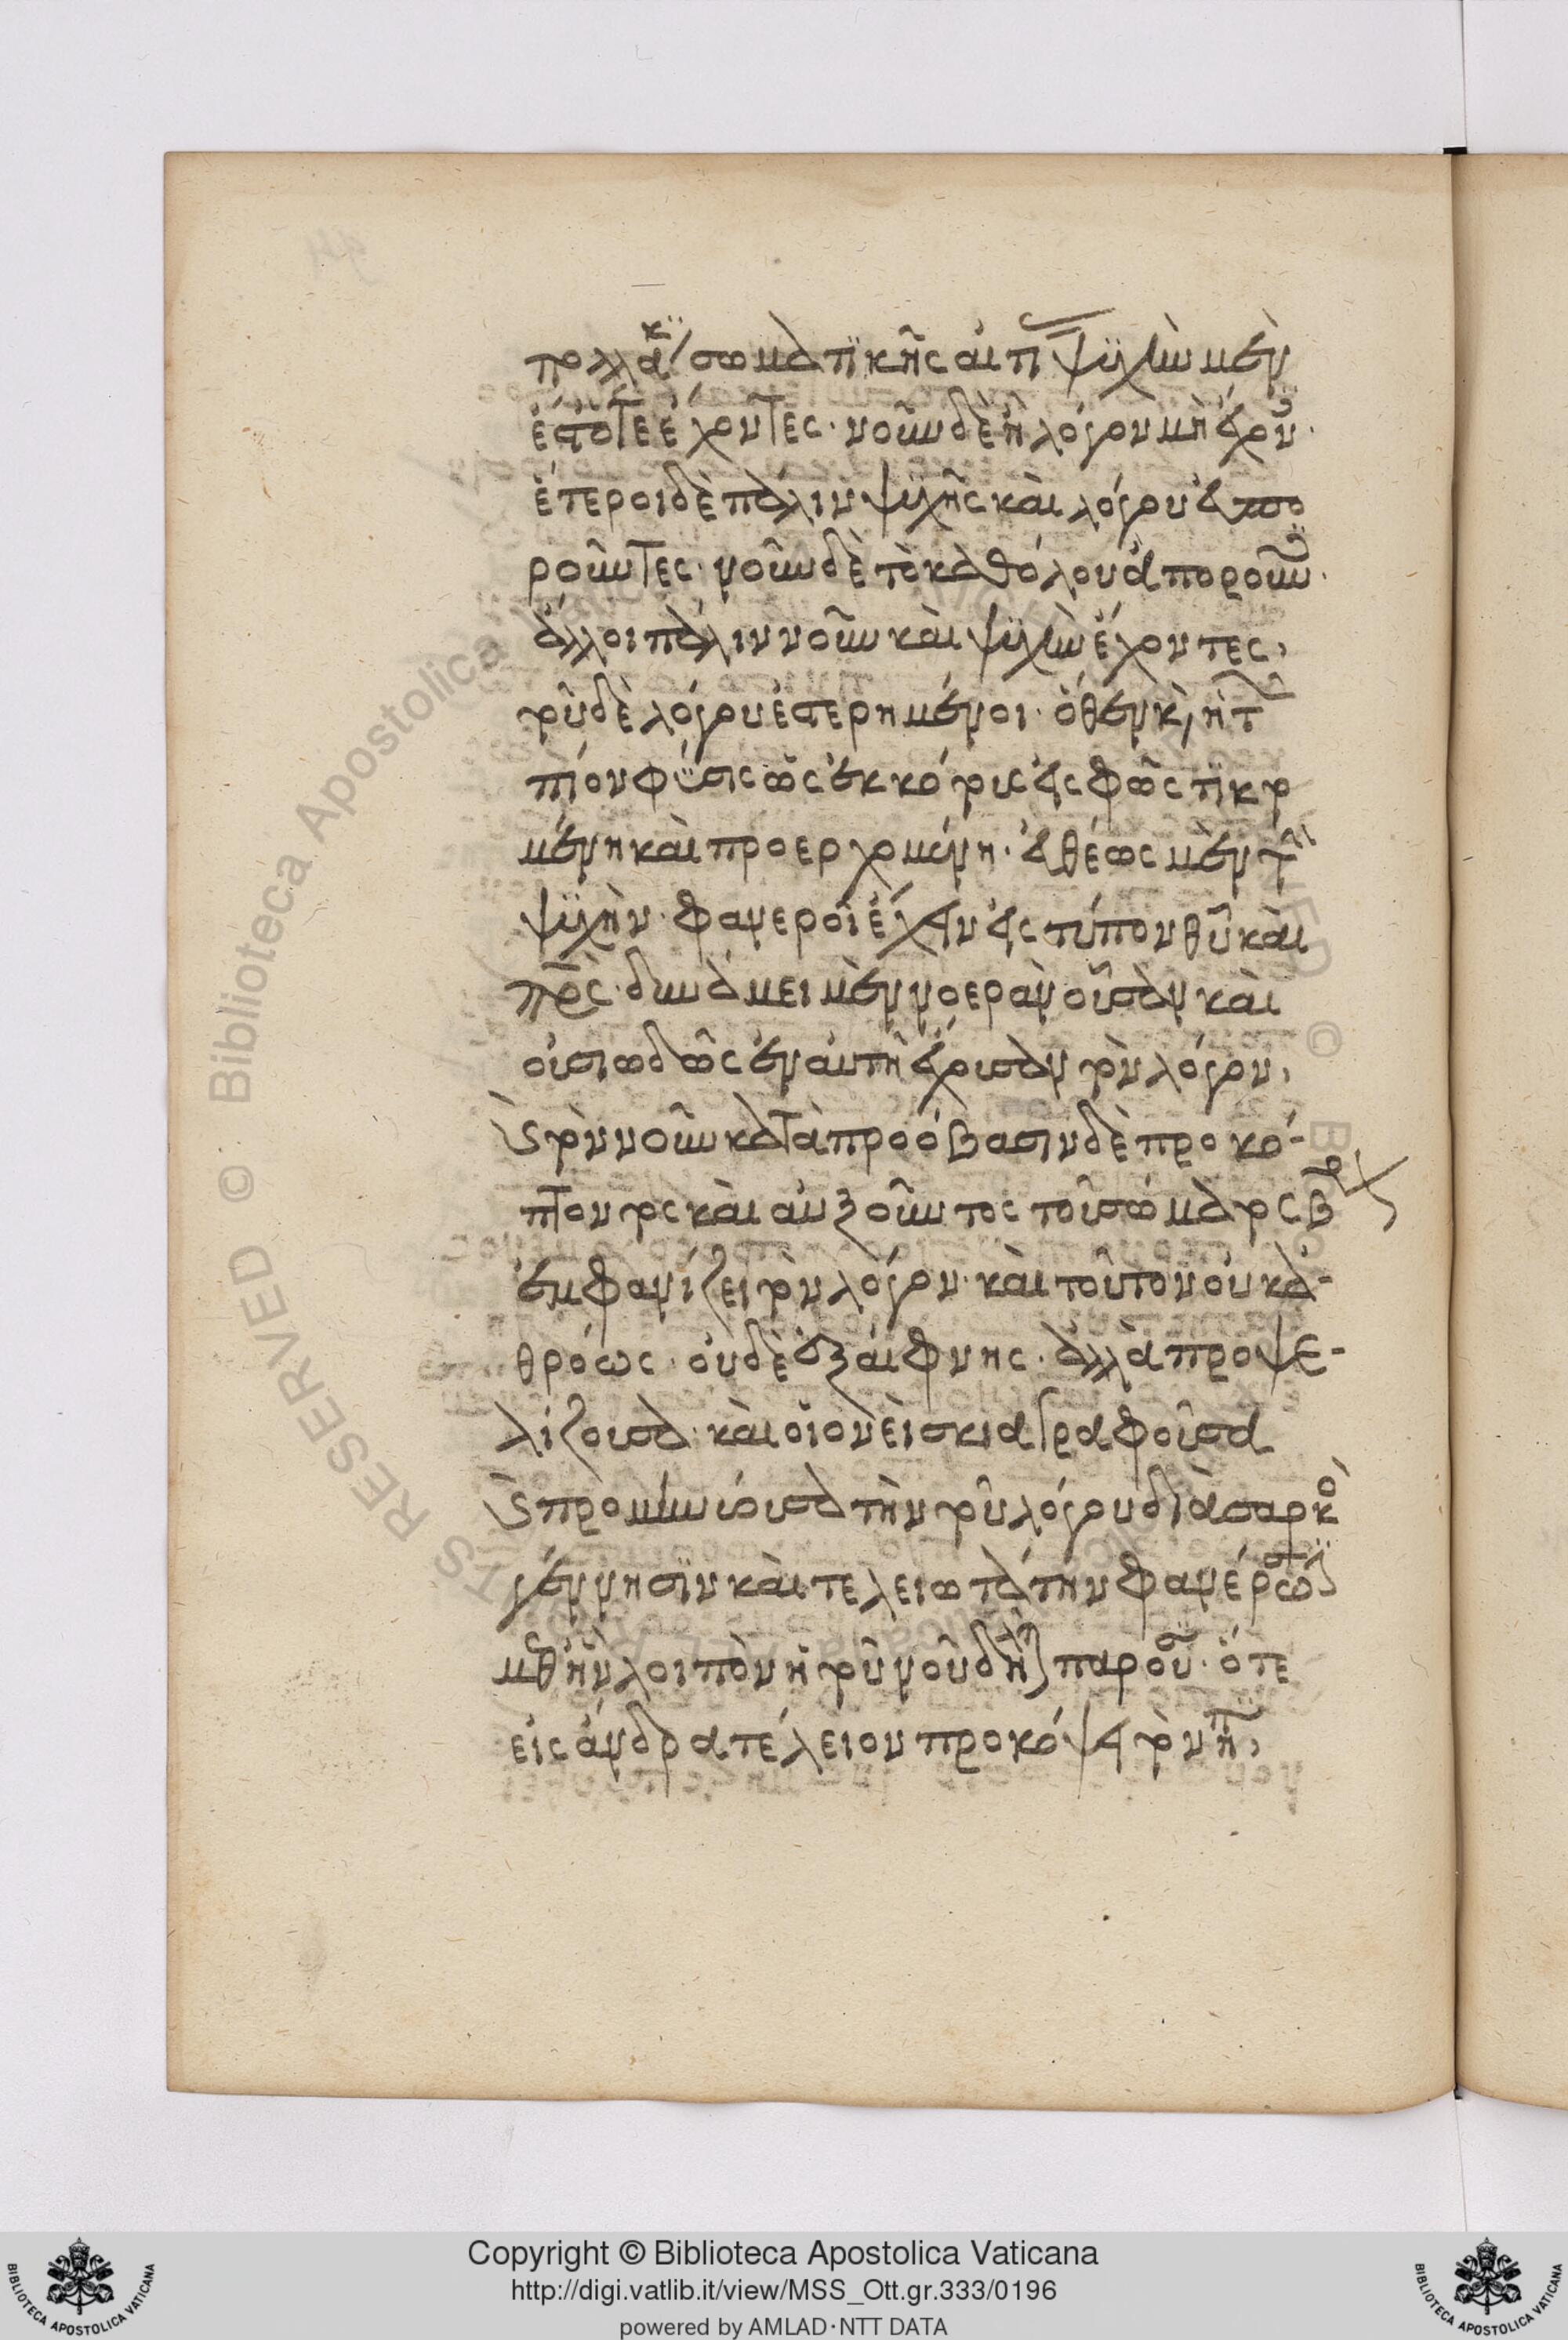 πολλάκις σωματικῆς αἰτίας ψυχὴν μὲν
ἔσθότε ἔχοντες· νοῦν δὲ ἢ λόγον μὴ ἔχοντες·
ἕτεροι δὲ πάλιν ψυχῆς καὶ λόγου εὐπο
ροῦντες· νοῦν δὲ τὸ καθόλου ἀποροῦντες·
ἄλλοι πάλιν νοῦν καὶ ψυχὴν ἔχοντες,
τοῦ δὲ λόγου ἐστερημένοι· ὅθεν καὶ ἡ τῶν
παίδων φύσις ὡς ἐκ κόρης εἰς φῶς τικτο
μένη καὶ προερχομένη· εὐθέως μὲν τὴν
ψυχὴν· φανεροῖ ἔχειν εἰς τύπον θυ καὶ
πρς· δυνάμει μὲν νοερὰν οὖσαν καὶ
οὐσιωδῶς ἐν αὐτῇ ἔχουσαν τὸν λόγον,
καὶ τὸν νοῦν κατὰ πρόσβασιν δὲ προκό-
πτοντος καὶ αὐξοῦντος τοῦ σώματος
ἐμφανίζει τὸν λόγον· καὶ τοῦτον οὐκ ἀ-
θρόως· οὐδὲ ἐξαίφνης· ἀλλὰ προψε-
λίζουσα· καὶ οἱονεὶ σκιαγραφοῦσα
καὶ προμηνύουσα τὴν τοῦ λόγου διὰ σαρκὸς
γέννησιν καὶ τελειωτάτην φανέρωσιν
μεθ᾽ ἣν λοιπὸν ἡ τοῦ νοῦ δηλ παρου· ὅτε
εἰς ἄνδρα τέλειον προκόψει τὸν
Copyright © Biblioteca Apostolica Vaticana
http://digi.vatlib.it/view/MSS_Ott.gr.333/0196
powered by AMLAD·NTT DATA